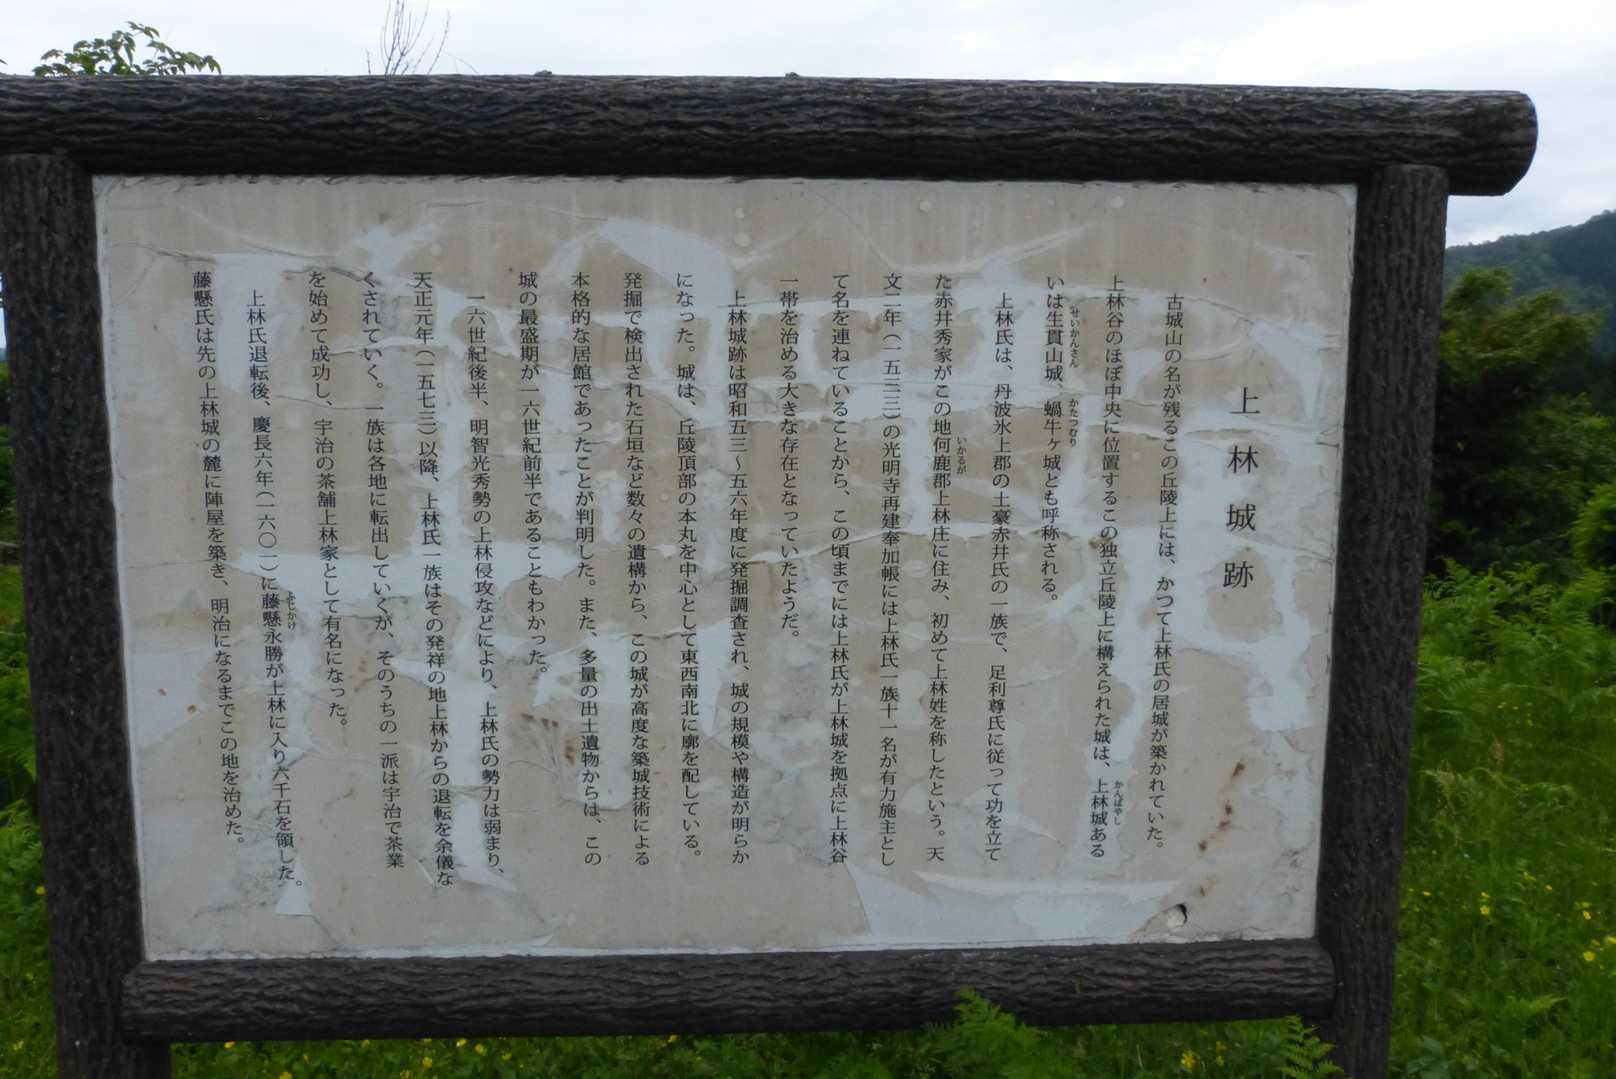 上林城跡
古城山の名が残るこの丘陵上には、かつて上林氏の居城が築かれていた。
上林谷のほぼ中央に位置するこの独立丘陵上に構えられた城は、上林城ある
かんばやし
いは生貫山城、蝸牛ヶ城とも呼称される。
せいかんさん
かたつむり
上林氏は、丹波氷上郡の土豪赤井氏の一族で、足利尊氏に従って功を立て
た赤井秀家がこの地何鹿郡上林庄に住み、初めて上林姓を称したという。天
いかるが
文二年(一五三三)の光明寺再建奉加帳には上林氏一族十一名が有力施主とし
て名を連ねていることから、この頃までには上林氏が上林城を拠点に上林谷
一帯を治める大きな存在となっていたようだ。
上林城跡は昭和五三～五六年度に発掘調査され、城の規模や構造が明らか
になった。城は、丘陵頂部の本丸を中心として東西南北に廓を配している。
発掘で検出された石垣など数々の遺構から、この城が高度な築城技術による
本格的な居館であったことが判明した。また、多量の出土遺物からは、この
城の最盛期が一六世紀前半であることもわかった。
一六世紀後半、明智光秀勢の上林侵攻などにより、上林氏の勢力は弱まり、
天正元年(一五七三)以降、上林氏一族はその発祥の地上林からの退転を余儀な
くされていく。一族は各地に転出していくが、そのうちの一派は宇治で茶業
を始めて成功し、宇治の茶舗上林家として有名になった。
上林氏退転後、慶長六年(一六〇一)に藤懸永勝が上林に入り六千石を領した。
ふじかけ
藤懸氏は先の上林城の麓に陣屋を築き、明治になるまでこの地を治めた。